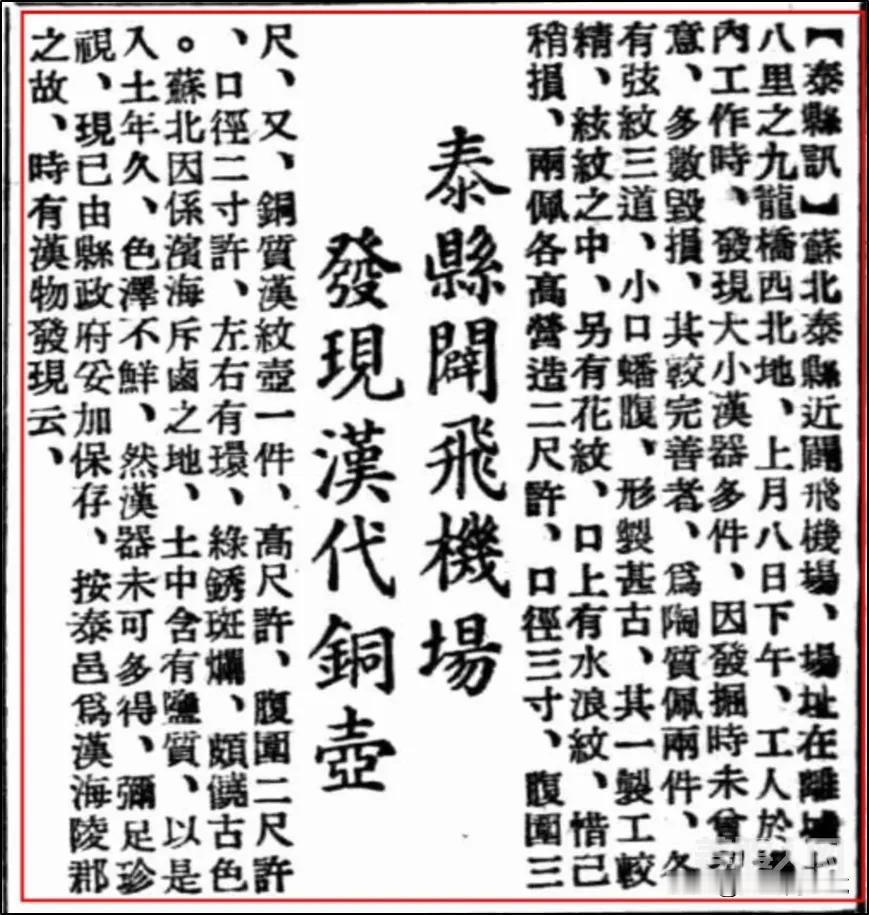 泰縣闢飛機場
發現漢代銅壺
【泰縣訊】蘇北泰縣近闢飛機場、場址在離城
八里之九龍橋西北地、上月八日下午、工人於
內工作時、發現大小漢器多件、因發掘時未曾
意、多數毀損、其較完善者、爲陶質佩兩件、各
有弦紋三道、小口蟠腹、形製甚古、其一製工較
精、絃紋之中、另有花紋、口上有水浪紋、惜已
稍損、兩佩各高營造二尺許、口徑三寸、腹圍三
尺、又、銅質漢紋壺一件、高尺許、腹圍二尺許
、口徑二寸許、左右有環、綠銹斑斕、頗饒古色
。蘇北因係濱海斥鹵之地、土中含有鹽質、以是
入土年久、色澤不鮮、然漢器未可多得、彌足珍
視、現已由縣政府妥加保存、按泰邑爲漢海陵郡
之故、時有漢物發現云、